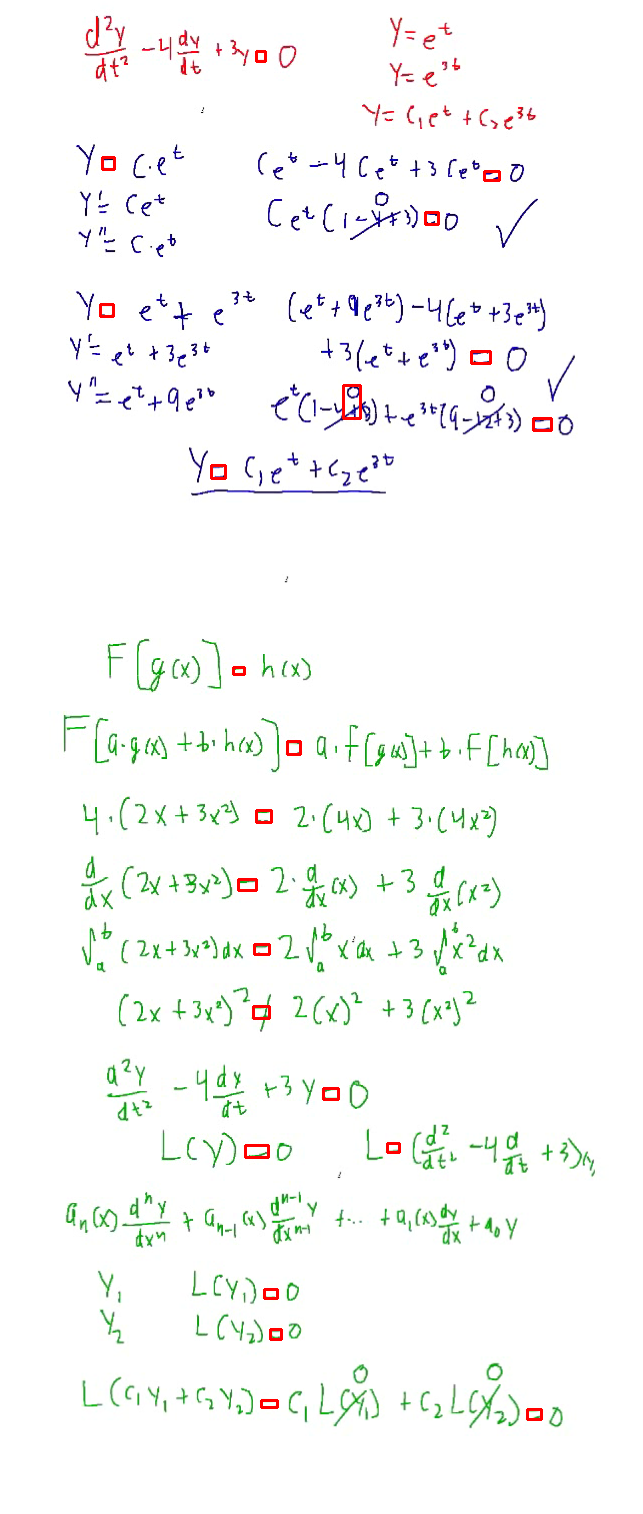 d²y/dt² - 4 dy/dt + 3y = 0
y = e^t
y = e^{3t}
y = C₁e^t + C₂e^{3t}
y = C·e^t
y' = Ce^t
y'' = C·e^t
Ce^t - 4Ce^t + 3Ce^t = 0
Ce^t(1-4+3) = 0 ✓
0
y = e^t + e^{3t}
y' = e^t + 3e^{3t}
y'' = e^t + 9e^{3t}
(e^t + 9e^{3t}) - 4(e^t + 3e^{3t})
+3(e^t + e^{3t}) = 0 ✓
0 0
e^t(1-4+3) + e^{3t}(9-12+3) = 0
y = C₁e^t + C₂e^{3t}
F[g(x)] = h(x)
F[a·g(x) + b·h(x)] = a·F[g(x)] + b·F[h(x)]
4·(2x + 3x²) = 2·(4x) + 3·(4x²)
d/dx (2x + 3x²) = 2·d/dx(x) + 3 d/dx(x²)
∫_a^b (2x + 3x²)dx = 2∫_a^b x dx + 3∫_a^b x²dx
(2x + 3x²)² ≠ 2(x)² + 3(x²)²
d²y/dt² - 4 dy/dt + 3y = 0
L(y) = 0 L = (d²/dt² - 4 d/dt + 3)
a_n(x) d^n y/dx^n + a_{n-1}(x) d^{n-1}y/dx^{n-1} + ... + a₁(x) dy/dx + a₀y
y₁ L(y₁) = 0
y₂ L(y₂) = 0
0 0
L(c₁y₁ + c₂y₂) = c₁L(y₁) + c₂L(y₂) = 0